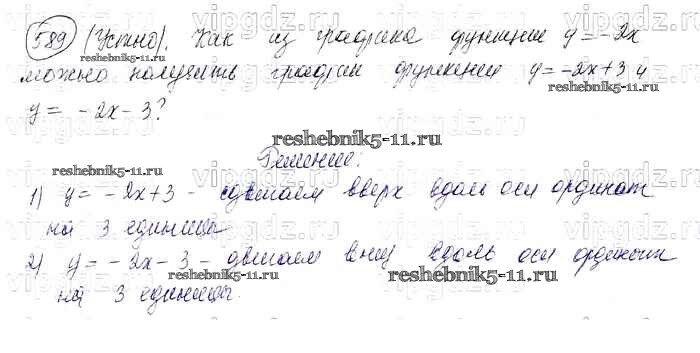 589 (Устно). Как из графика функции y = -2x
можно получить график функции y = -2x + 3 и
y = -2x - 3?
Решение:
1) y = -2x + 3 - сдвигаем вверх вдоль оси ординат
на 3 единицы
2) y = -2x - 3 - сдвигаем вниз вдоль оси ординат
на 3 единицы.
reshebnik5-11.ru
reshebnik5-11.ru
reshebnik5-11.ru
reshebnik5-11.ru
reshebnik5-11.ru
reshebnik5-11.ru
vipgdz.ru